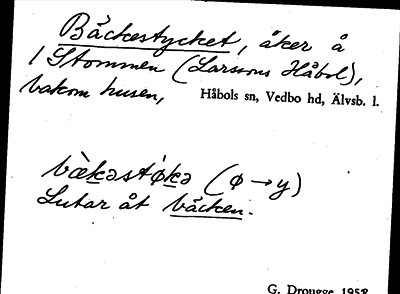 Bäckestycket, åker å
1 Stommen (Larssons Håbol),
bakom husen,
Håbols sn, Vedbo hd, Älvsb. l.
bæ̀kəstø̀kə (ø→y)
Lutar åt bäcken.
G. Drougge 1952